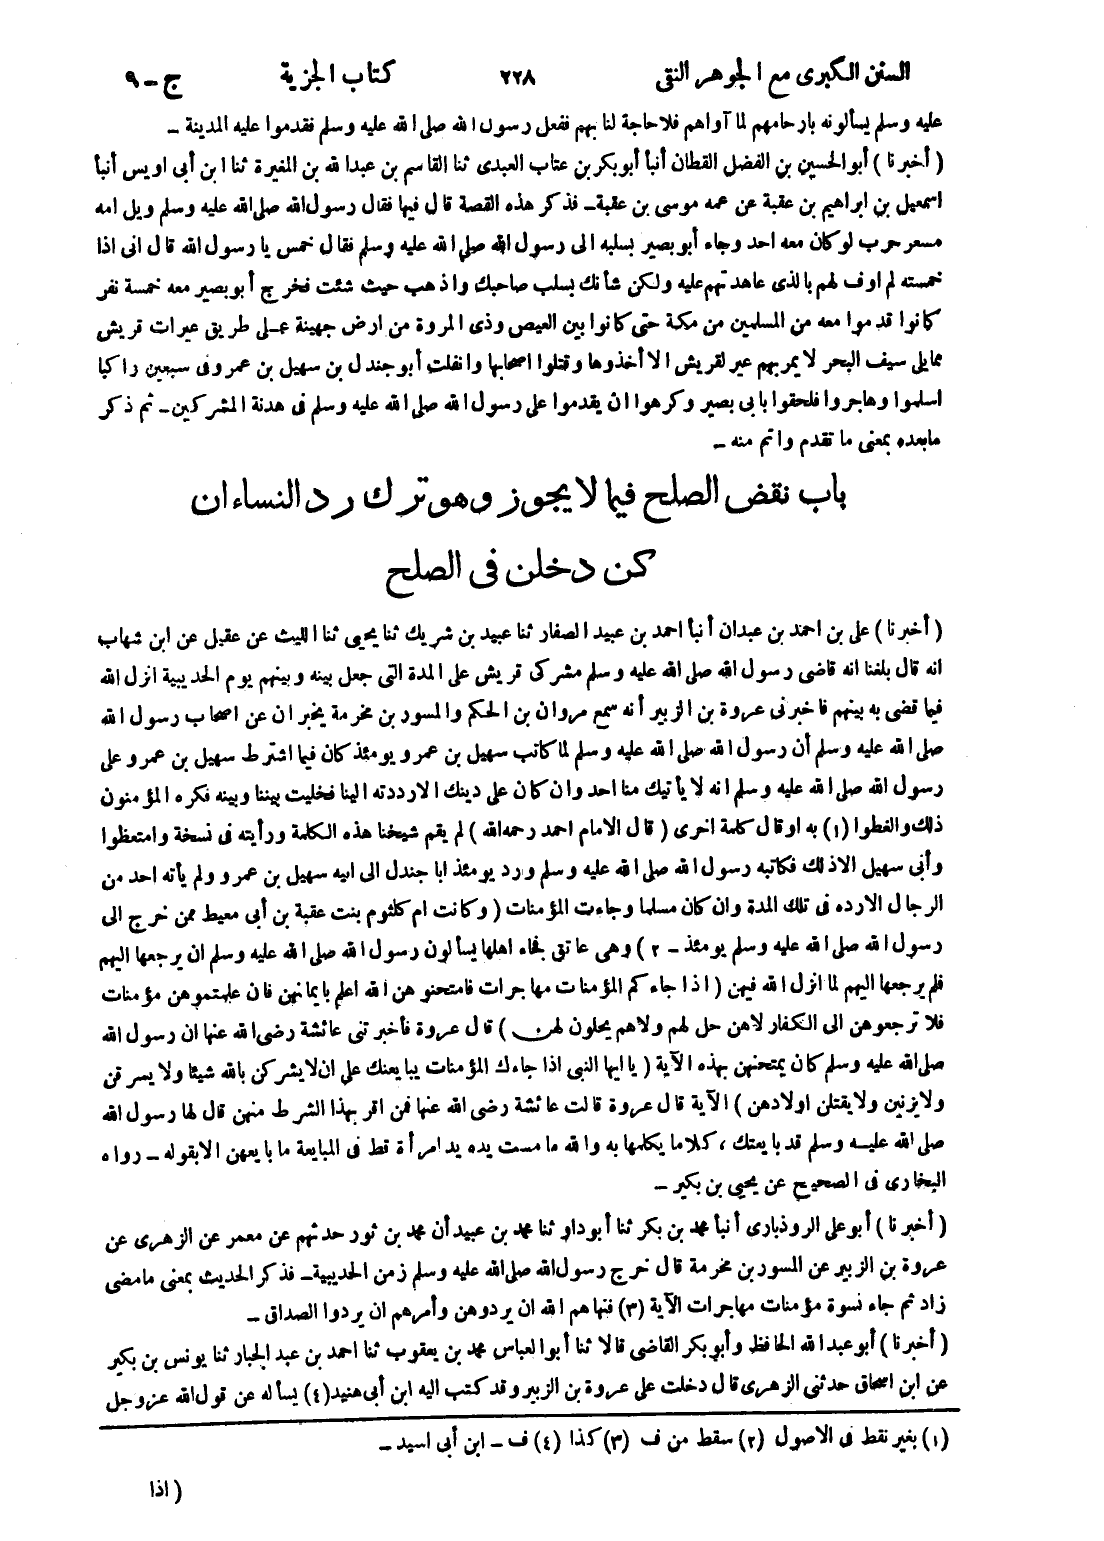 السنن الكبرى مع الجوهر النقى ٢٢٨ كتاب الجزية ج ـ ٩
عليه وسلم يسألونه بارحامهم لما آواهم فلاحاجة لنا بهم ففعل رسول الله صلى الله عليه وسلم فقدموا عليه المدينة ـ
( أخبرنا ) أبو الحسين بن الفضل القطان أنبأ أبو بكر بن عتاب العبدى ثنا القاسم بن عبدالله بن المغيرة ثنا ابن أبى اويس أنبأ
اسمعيل بن ابراهيم بن عقبة عن عمه موسى بن عقبة ـ فذكر هذه القصة قال فيها فقال رسول الله صلى الله عليه وسلم ويل امه
مسعر حرب لوكان معه احد وجاء أبو بصير بسلبه الى رسول الله صلى الله عليه وسلم فقال خمس يا رسول الله قال انى اذا
خمسته لم اوف لهم بالذى عاهدتهم عليه ولكن شأنك بسلب صاحبك واذهب حيث شئت فخرج أبو بصير معه خمسة نفر
كانوا قدموا معه من المسلمين من مكة حتى كانوا بين العيص وذى المروة من ارض جهينة على طريق عيرات قريش
ممايلى سيف البحر لا يمر بهم عير لقريش الا أخذوها وقتلوا اصحابها وانفلت أبو جندل بن سهيل بن عمرو فى سبعين راكبا
اسلموا وهاجروا فلحقوا بابى بصير وكرهوا ان يقدموا على رسول الله صلى الله عليه وسلم فى هدنة المشركين ـ ثم ذكر
مابعده بمعنى ما تقدم واتم منه ـ
باب نقض الصلح فيما لا يجوز وهو ترك رد النساء ان
كن دخلن فى الصلح
( أخبرنا ) على بن احمد بن عبدان أنبأ احمد بن عبيد الصفار ثنا عبيد بن شريك ثنا يحيى ثنا الليث عن عقيل عن ابن شهاب
انه قال بلغنا انه قاضى رسول الله صلى الله عليه وسلم مشركى قريش على المدة التى جعل بينه وبينهم يوم الحديبية انزل الله
فيما قضى به بينهم فاخبرنى عروة بن الزبير أنه سمع مروان بن الحكم والمسور بن مخرمة يخبران عن اصحاب رسول الله
صلى الله عليه وسلم أن رسول الله صلى الله عليه وسلم لما كاتب سهيل بن عمرو يومئذ كان فيما اشترط سهيل بن عمرو على
رسول الله صلى الله عليه وسلم انه لا يأتيك منا احد وان كان على دينك الا رددته الينا فخليت بيننا وبينه فكره المؤمنون
ذلك والغطوا (١) به اوقال كلمة اخرى ( قال الامام احمد رحمه الله ) لم يقم شيخنا هذه الكلمة ورأيته فى نسخة وامتعظوا
وأبى سهيل الا ذلك فكاتبه رسول الله صلى الله عليه وسلم ورد يومئذ ابا جندل الى ابيه سهيل بن عمرو ولم يأته احد من
الرجال الا رده فى تلك المدة وان كان مسلما وجاءت المؤمنات ( وكانت ام كلثوم بنت عقبة بن أبى معيط ممن خرج الى
رسول الله صلى الله عليه وسلم يومئذ ـ ٢ ) وهى عاتق فجاء اهلها يسألون رسول الله صلى الله عليه وسلم ان يرجعها اليهم
فلم يرجعها اليهم لما انزل الله فيهن ( اذا جاءكم المؤمنات مهاجرات فامتحنوهن الله اعلم بايمانهن فان علمتموهن مؤمنات
فلا ترجعوهن الى الكفار لاهن حل لهم ولاهم يحلون لهن ) قال عروة فأخبرتنى عائشة رضى الله عنها ان رسول الله
صلى الله عليه وسلم كان يمتحنهن بهذه الآية ( يا ايها النبى اذا جاءك المؤمنات يبايعنك على ان لا يشركن بالله شيئا ولا يسرقن
ولا يزنين ولا يقتلن اولادهن ) الآية قال عروة قالت عائشة رضى الله عنها فمن اقر بهذا الشرط منهن قال لها رسول الله
صلى الله عليـه وسلم قد بايعتك ، كلاما يكلمها به والله مامست يده يد امرأة قط فى المبايعة ما بايعهن الا بقوله ـ رواه
البخارى فى الصحيح عن يحيى بن بكير ـ
( أخبرنا ) أبو على الروذبارى أنبأ محمد بن بكر ثنا أبو داو ثنا محمد بن عبيد أن محمد بن ثور حدثهم عن معمر عن الزهرى عن
عروة بن الزبير عن المسور بن مخرمة قال خرج رسول الله صلى الله عليه وسلم زمن الحديبية ـ فذكر الحديث بمعنى مامضى
زاد ثم جاء نسوة مؤمنات مهاجرات الآية (٣) فنهاهم الله ان يردوهن وأمرهم ان يردوا الصداق ـ
( أخبرنا ) أبو عبد الله الحافظ وأبو بكر القاضى قالا ثنا أبو العباس محمد بن يعقوب ثنا احمد بن عبد الجبار ثنا يونس بن بكير
عن ابن اسحاق حدثنى الزهرى قال دخلت على عروة بن الزبير وقد كتب اليه ابن أبى هنيد (٤) يسأله عن قول الله عز وجل
(١) بغير نقط فى الاصول (٢) سقط من ف (٣) كذا (٤) ف ـ ابن أبى اسيد ـ
( اذا